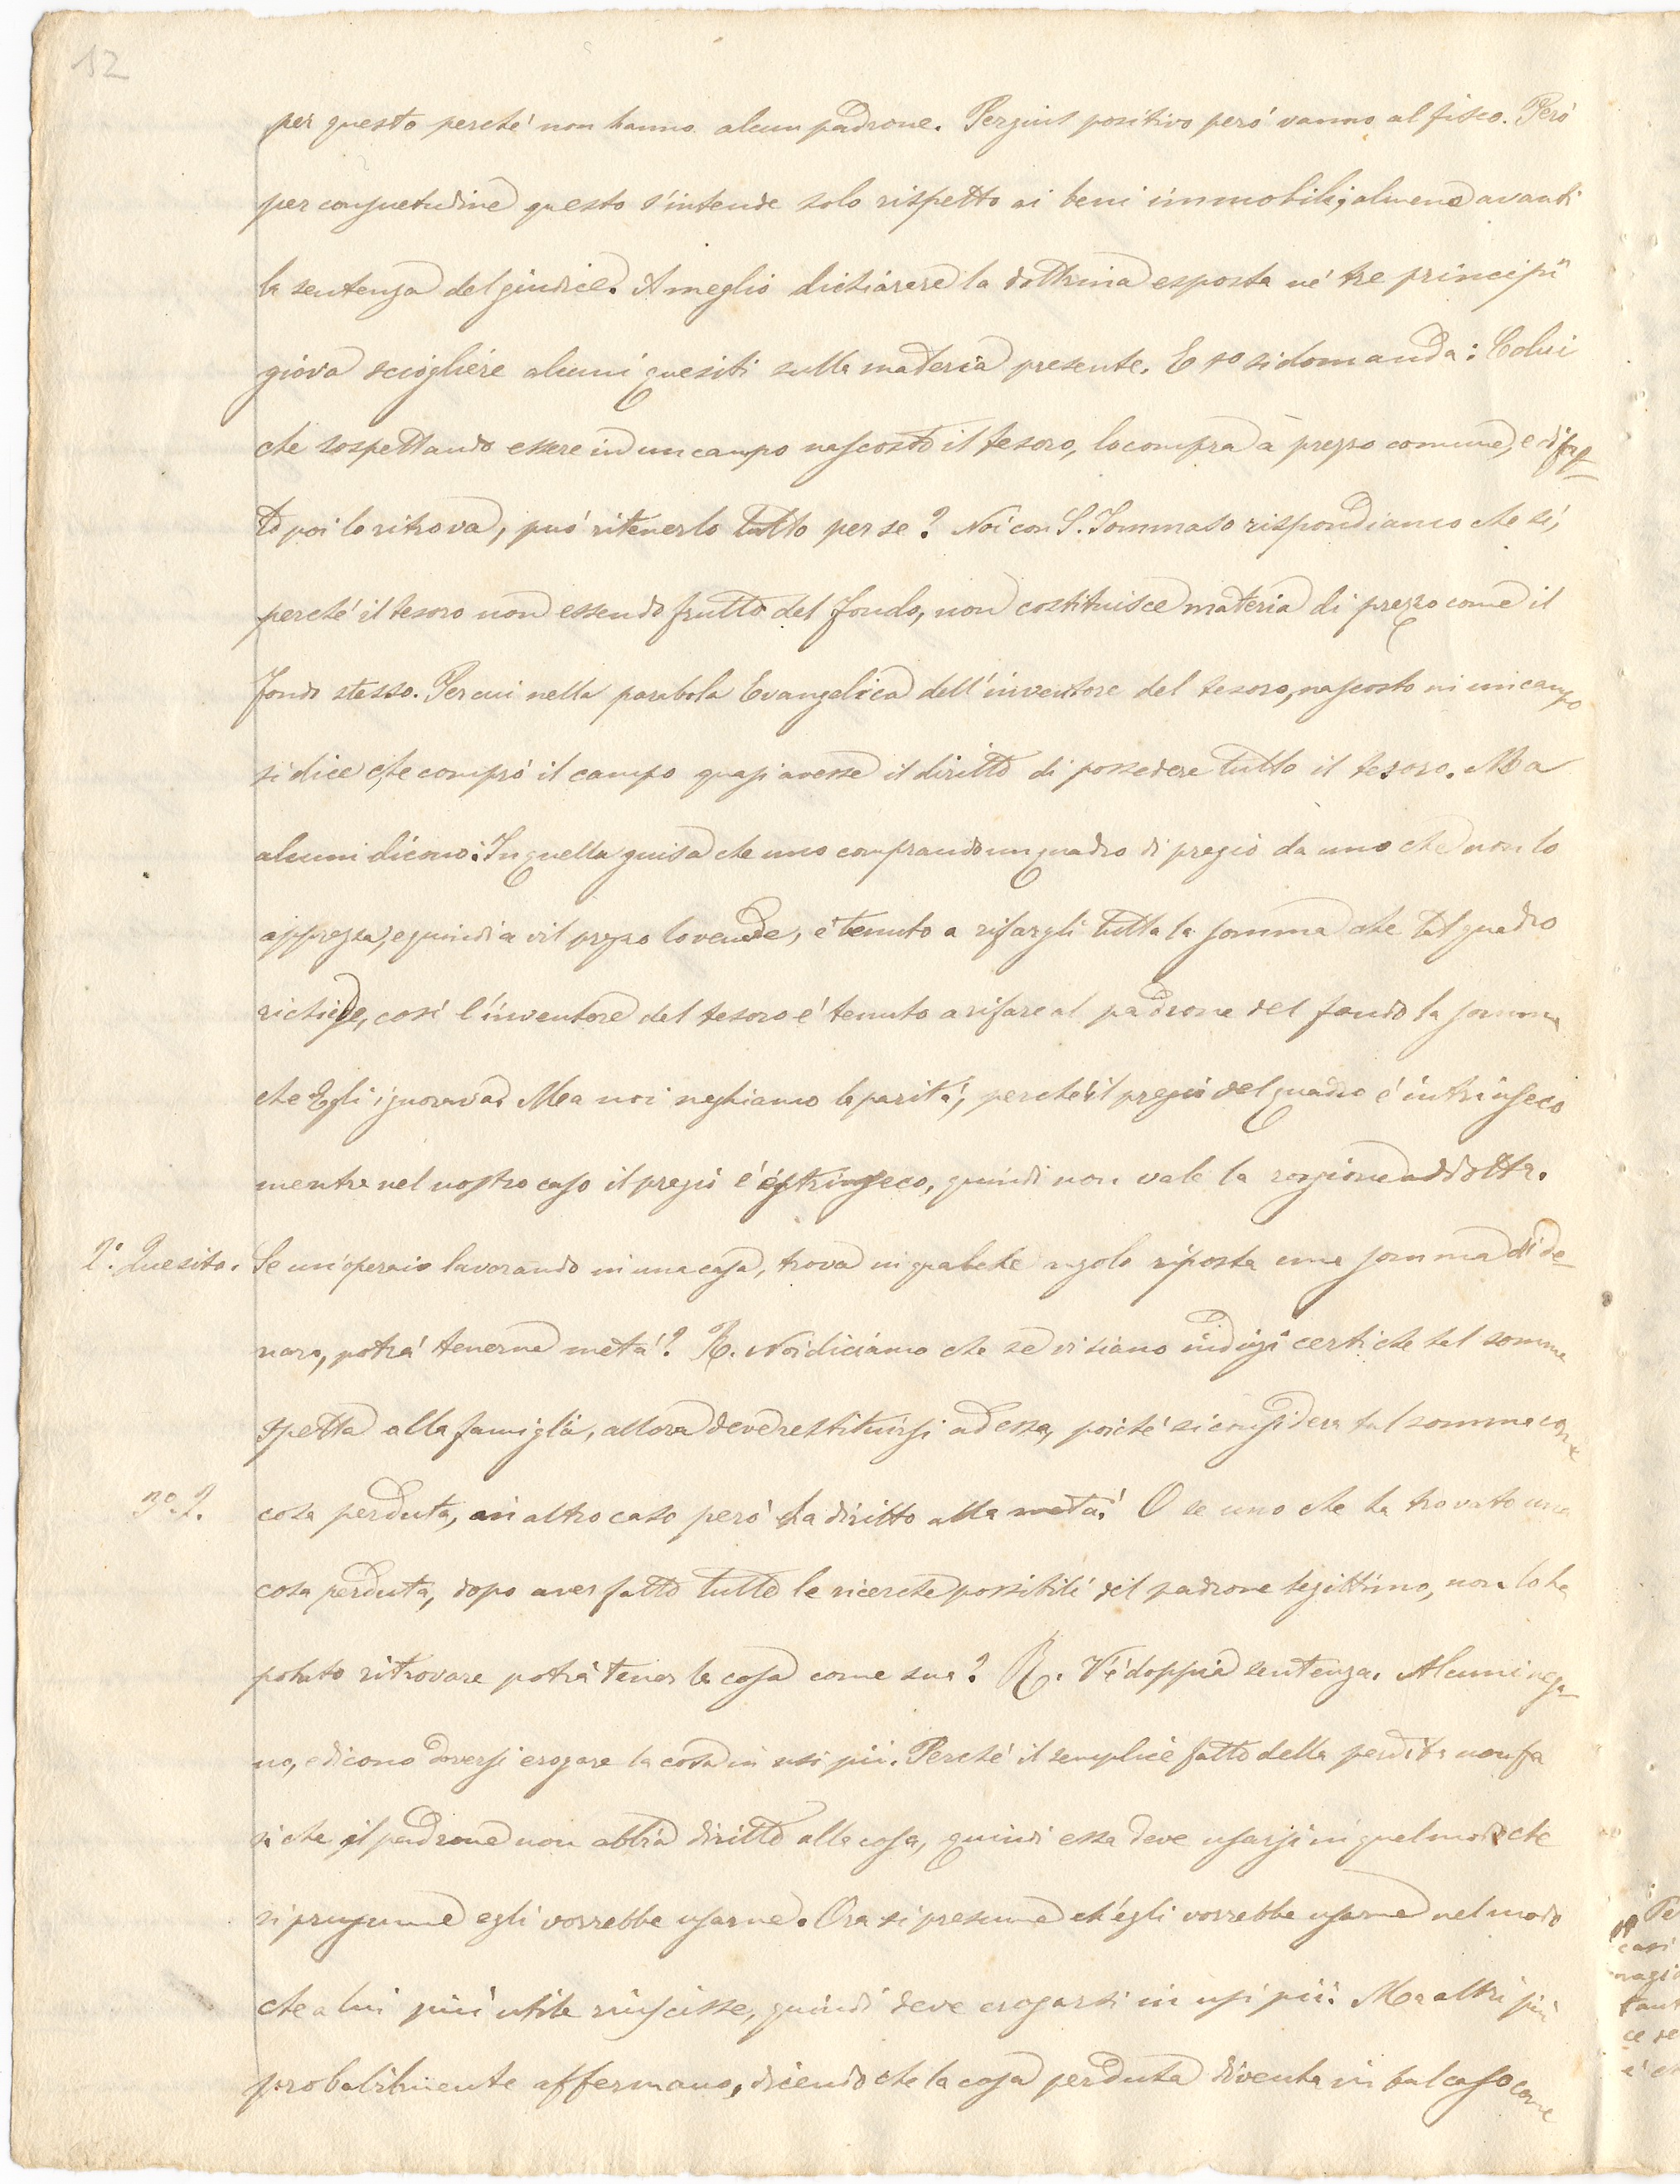 12
per questo perché non hanno alcun padrone. Per gius positivo peró vanno al fisco. Peró
per consuetudine questo s'intende solo rispetto ai beni immobili; almeno avanti
la sentenza del giudice. A meglio dichiarare la dottrina esposta ne' tre principii
giova sciogliere alcuni quesiti sulla materia presente. E 1º si domanda: Colui
che sospettando essere in un campo nascosto il tesoro, lo compra a prezzo comune, e di fat=
to poi lo ritrova, puó ritenerlo tutto per se? Noi con S. Tommaso rispondiamo che sí,
perché il tesoro non essendo frutto del fondo, non costituisce materia di prezzo come il
fondo stesso. Per cui nella parabola Evangelica dell'inventore del tesoro, nascosto in un campo
si dice che compró il campo quasi avesse il diritto di possedere tutto il tesoro. Ma
alcuni dicono: In quella guisa che uno comprando un quadro di pregio da uno che non lo
apprezza, e quindi a vil prezzo lo vende, é tenuto a rifargli tutta la somma che tal quadro
richiede, cosí l'inventore del tesoro é tenuto a rifare al padrone del fondo la somma
che Egli ignorava. Ma noi neghiamo la paritá, perché il pregio del quadro é intrinseco
mentre nel nostro caso il pregio é estrinseco, quindi non vale la ragione addotta.
2º. Quesito. Se un'operaio lavorando in una casa, trova in qualche angolo riposta una somma di de=
naro, potrá tenerne metá? R. Noi diciamo che se vi siano indizi certi che tal somma
spetta alla famiglia, allora deve restituirsi ad essa, poiché si considera tal somma come
3º. Q. cosa perduta, in altro caso peró ha diritto alla metá. O se uno che ha trovato una
cosa perduta, dopo aver fatto tutte le ricerche possibili del padrone legittimo, non lo ha
potuto ritrovare potrá tener la cosa come sua? R. V'é doppia sentenza. Alcuni nega=
no, e dicono doversi erogare la cosa in usi pii. Perché il semplice fatto della perdita non fa
sí che il padrone non abbia diritto alla cosa, quindi essa deve usarsi in quel modo che
si presume egli vorrebbe usarne. Ora si presume ch'egli vorrebbe usarne nel modo
che a lui piú utile riuscisse, quindi deve erogarsi in usi pii. Ma altri piú
probabilmente affermano, dicendo che la cosa perduta diventa in tal caso come